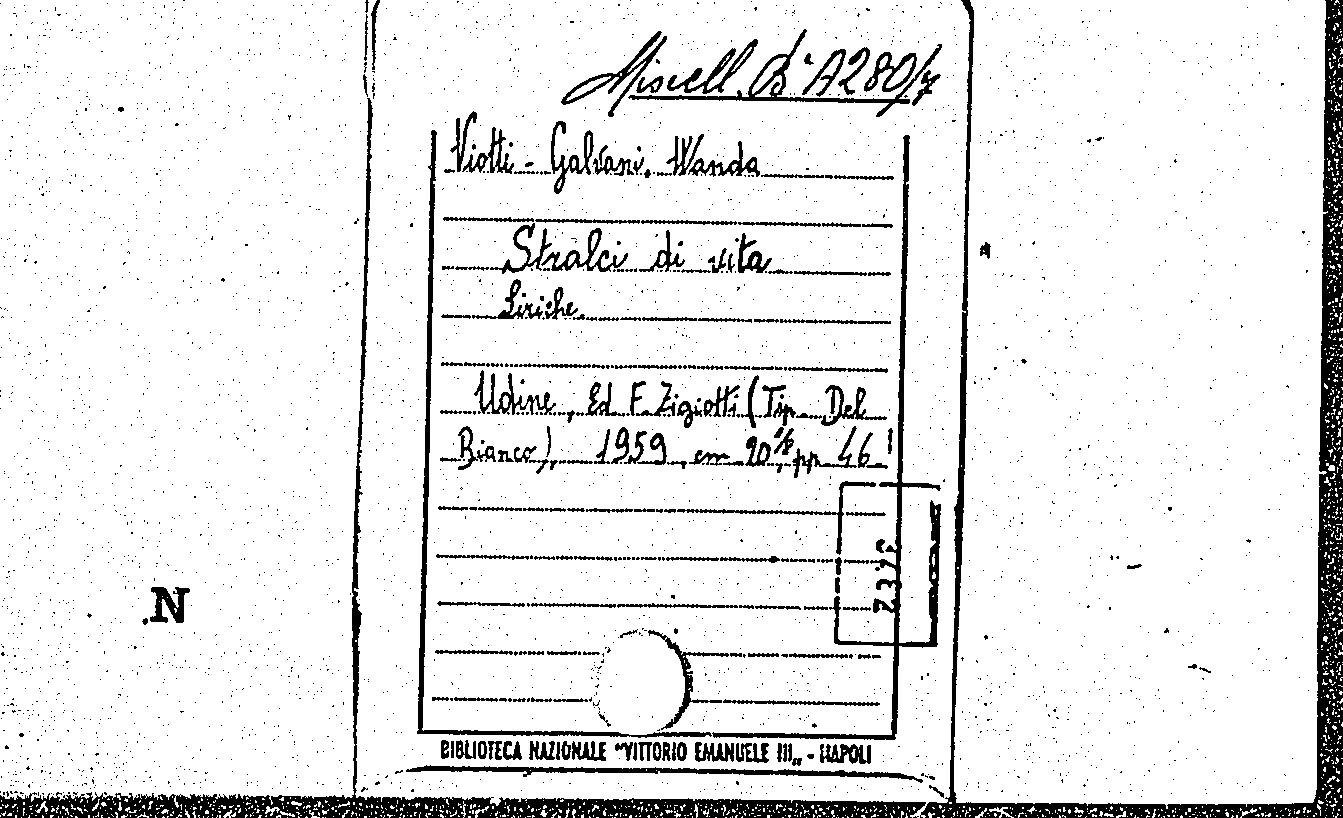 Miscell. Bª A280/7
Viotti - Galvani. Wanda
Stralci di vita
Liriche.
Udine, Ed F. Zigiotti (Tip. Del
Bianco), 1959, cm 20½, pp 46.
N
BIBLIOTECA NAZIONALE "VITTORIO EMANUELE III„ - NAPOLI